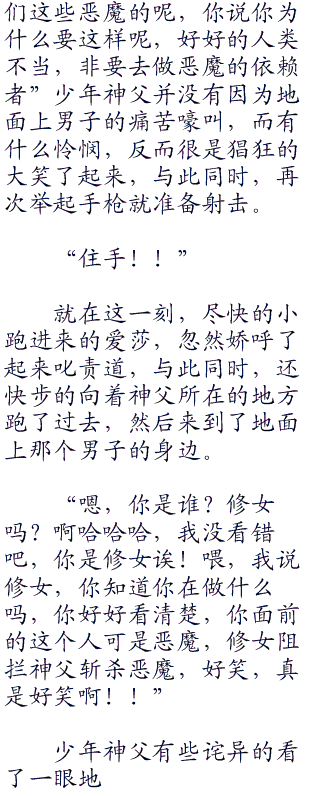 们这些恶魔的呢，你说你为
什么要这样呢，好好的人类
不当，非要去做恶魔的依赖
者”少年神父并没有因为地
面上男子的痛苦嚎叫，而有
什么怜悯，反而很是猖狂的
大笑了起来，与此同时，再
次举起手枪就准备射击。
“住手！！”
就在这一刻，尽快的小
跑进来的爱莎，忽然娇呼了
起来叱责道，与此同时，还
快步的向着神父所在的地方
跑了过去，然后来到了地面
上那个男子的身边。
“嗯，你是谁？修女
吗？啊哈哈哈，我没看错
吧，你是修女诶！喂，我说
修女，你知道你在做什么
吗，你好好看清楚，你面前
的这个人可是恶魔，修女阻
拦神父斩杀恶魔，好笑，真
是好笑啊！！”
少年神父有些诧异的看
了一眼地